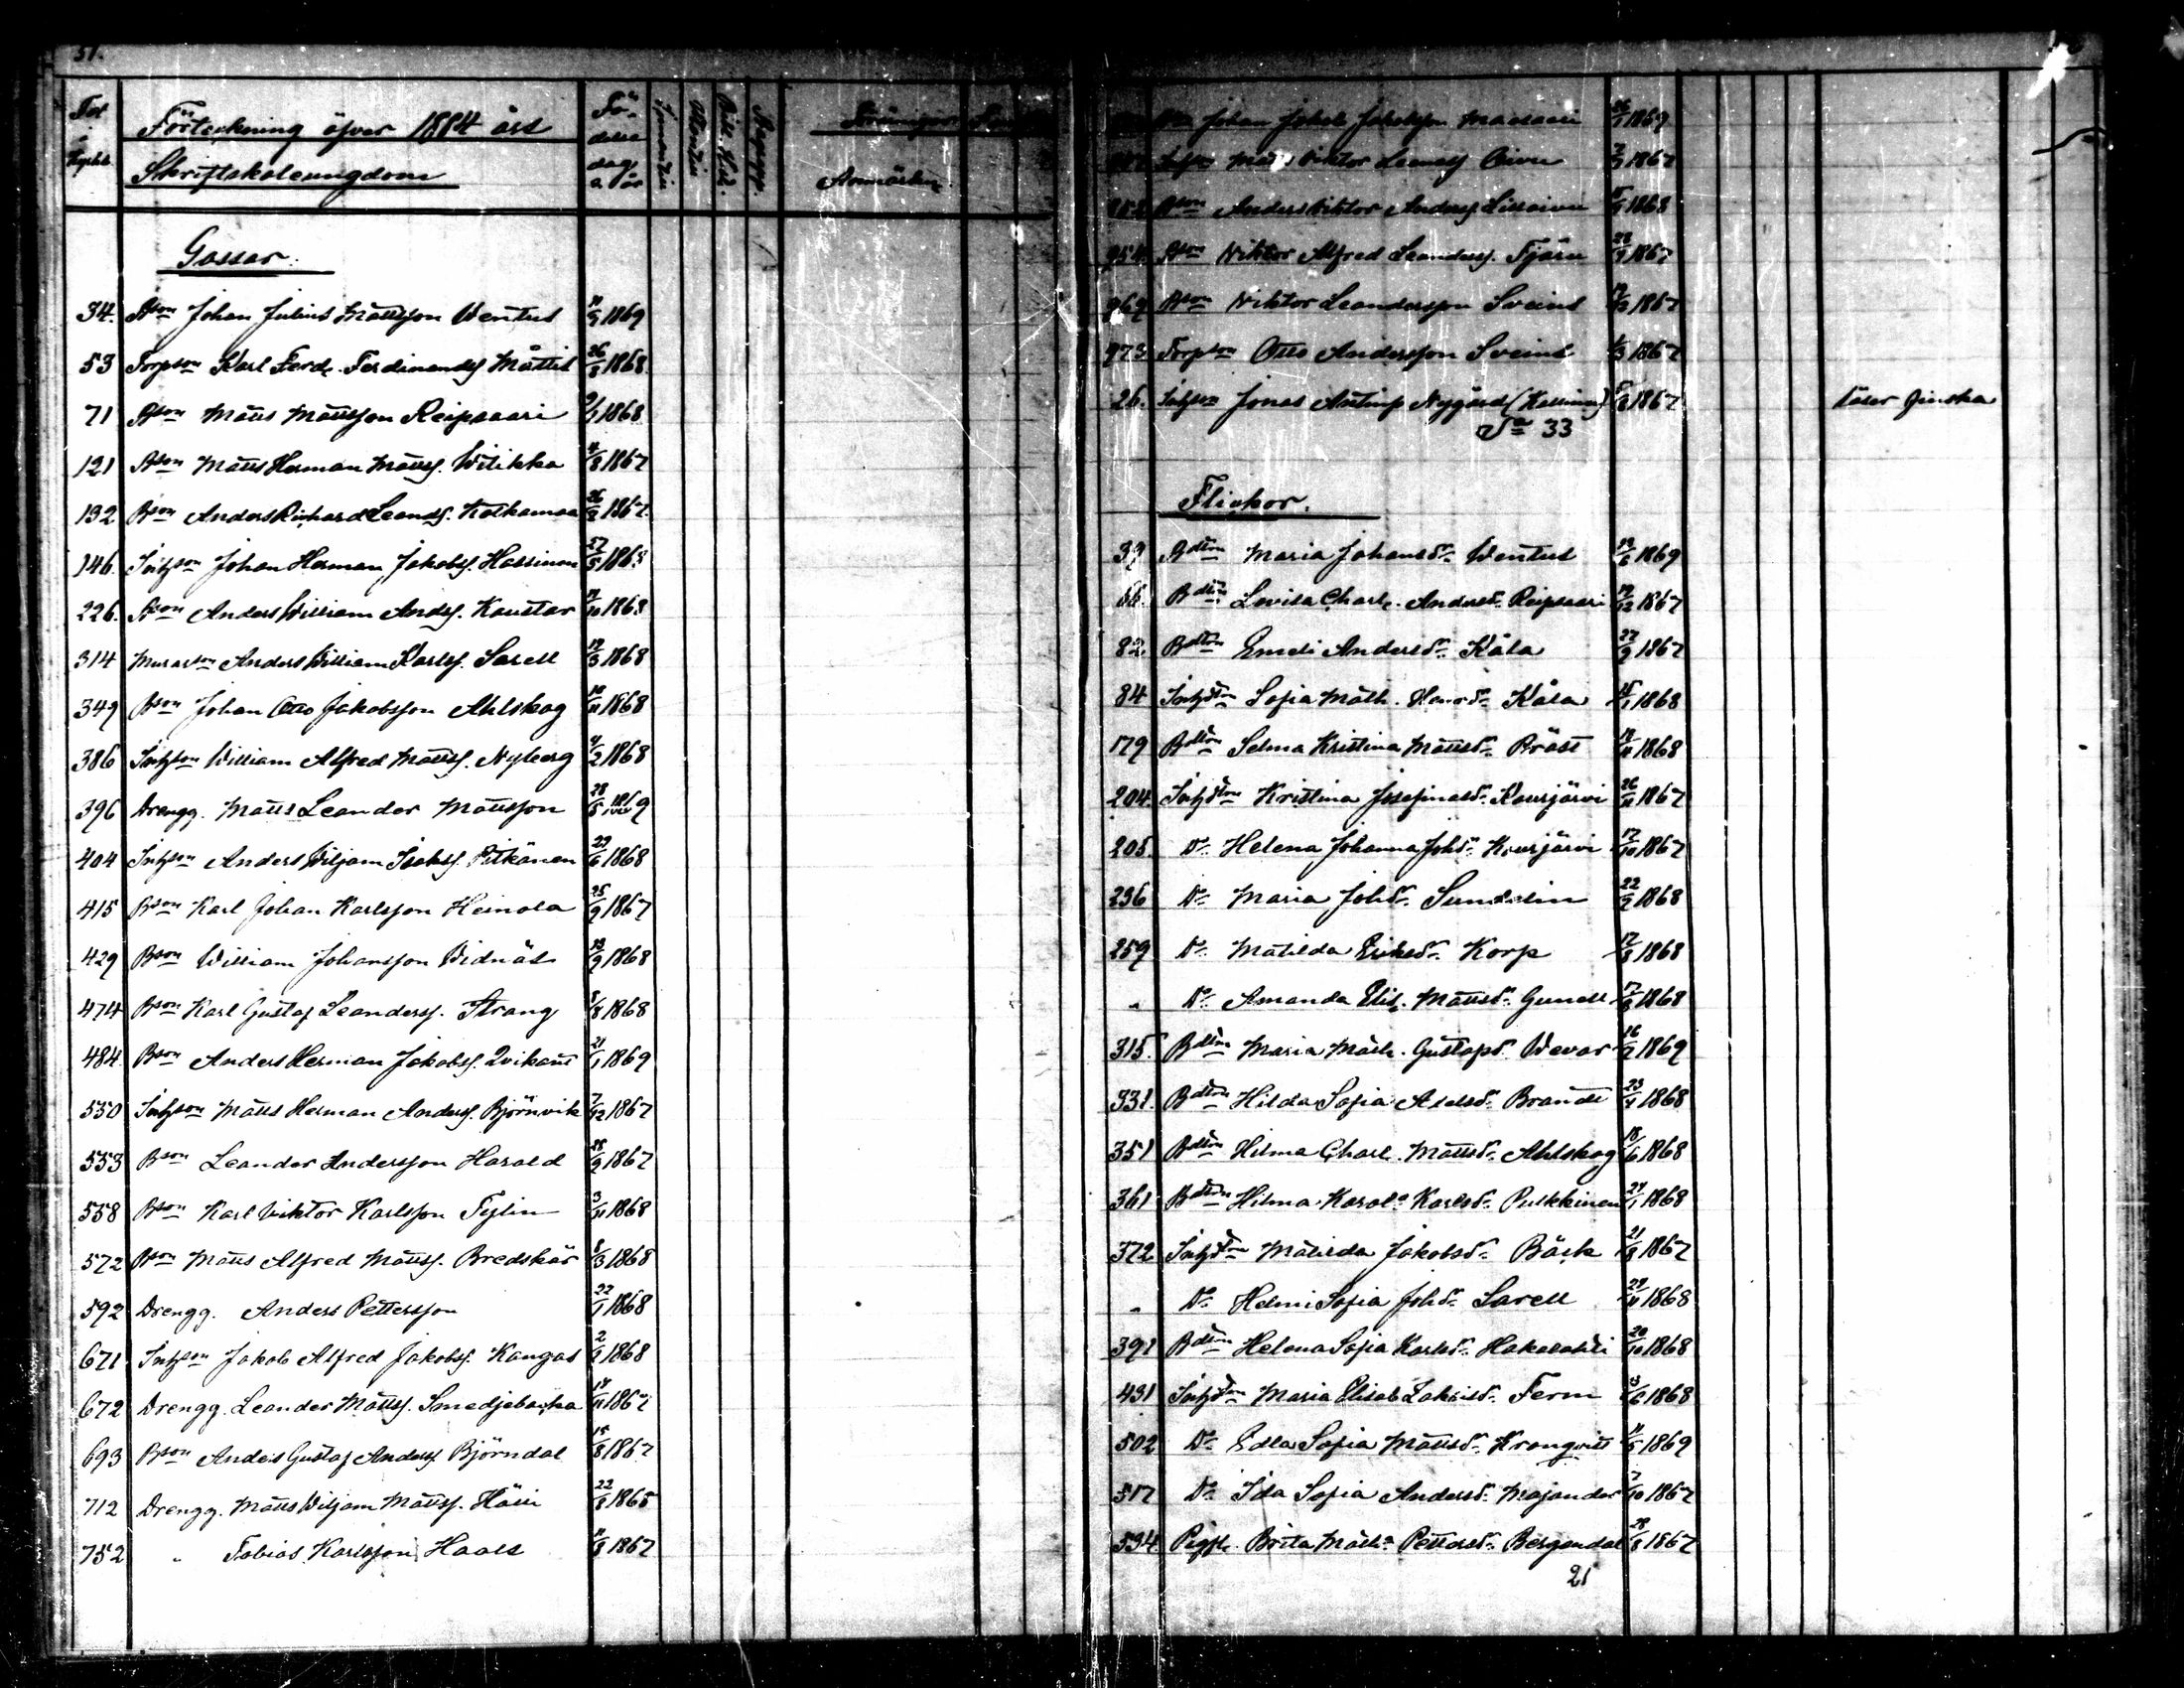 51.
Förteckning öfver 1884 års
Skriftskoleungdom
Födelse dag o. år
Anmärkn.
Gossar.
34. Bson Johan Julius Mattsson Wentus 1869
53 Torpson Karl Ferd. Ferdinandss Måttis 26/8 1868
71 Bson Matts Mattsson Reipsaari 9/1 1868
121 Bson Matts Herman Mattss. Witikka 1867
132 Bson Anders Richard Leandss. Kolkamaa 26/8 1867
146. Inhson Johan Herman Jakobss. Hassinen 27/5 1868
226. Bson Anders William Andss. Kaustar 1868
314 Murarson Anders William Karlss. Sarell 1868
349 Bson Johan Otto Jakobsson Ahlskog 10/11 1868
386 Inhson William Alfred Mattss. Nyberg 4/2 1868
396 Drengg. Matts Leander Mattsson 28/5 1869
404 Inhson Anders Wiljam Isakss. Pitkänen 29/6 1868
415 Bson Karl Johan Karlsson Heinola 25/9 1867
429 Bson William Johansson Widnäs 13/9 1868
474 Bson Karl Gustaf Leanderss. Strang 5/8 1868
484. Bson Anders Herman Jakobss. Qvikant 21/1 1869
550 Inhson Matts Herman Anderss. Björnvik 7/12 1867
553 Bson Leander Andersson Harald 28/9 1867
558 Bson Karl Viktor Karlsson Tylin 3/11 1868
572 Bson Matts Alfred Mattss. Bredskär 8/3 1868
592 Drengg. Anders Pettersson 22/1 1868
671 Inhson Jakob Alfred Jakobss. Kangas 1868
672 Drengg. Leander Mattss. Smedjebacka 14/11 1867
693 Bson Anders Gustaf Anderss Björndal 15/8 1867
712 Drengg. Matts Wiljam Mattss. 22/8 1868
752 " Tobias Karlsson Haals 1867
Johan Jakob Jakobsson 1869
Inhson Matts Viktor Leandss 1867
Bson Anders Viktor Anderss 1868
954 Bson Viktor Alfred Leanderss. Fjäru 1867
969 Bson Viktor Leandersson Sveins 1867
973 Torpson Otto Andersson Sveins 1/3 1867
26. Inhson Jonas Nygård 1867 läser finska
Sa 33
Flickor.
39 Bdton Maria Johansdr Wentus 1869
66. Bdton Lovisa Charl. Andersdr. Reipsaari 19/12 1867
82 Bdton Emeli Andersdr Kåla 27/9 1867
84 Inhdton Sofia Math. Kåla 15/1 1868
179 Bdton Selma Kristina Mattsdr Präst 1868
204 Inhdton Kristina Josefinasdr Kaursjärvi 26/11 1867
205. Do Helena Johanna Johdr Kaursjärvi 17/10 1867
236 Do Maria Johdr Sundelin 22/9 1868
259 Do Matilda Eriksdr Korp 17/8 1868
" Do Amanda Elis. Mattsdr Gunell 1868
315. Bdton Maria Math. Gustafsdr Wevar 16/2 1869
331. Bdton Hilda Sofia Axelsdr Brandt 23/4 1868
351 Bdton Hilma Charl. Mattsdr Ahlskog 18/6 1868
361 Bdton Hilma Karola Karlsdr Pulkkinen 1868
372 Inhdton Matilda Jakobsdr Bäck 21/8 1867
" Do Helmi Sofia Johdr Sarell 29/11 1868
391 Bdton Helena Sofia Karlsdr 20/10 1868
431 Inhdton Maria Elisab. Zakrisdr Ferm 1868
502 Do Edla Sofia Mattsdr Kronqvist 1869
517 Do Ida Sofia Andersdr Majander 7/10 1867
534 Pigfl. Brita Matha Pettersdr Bergendal 28/8 1867
21